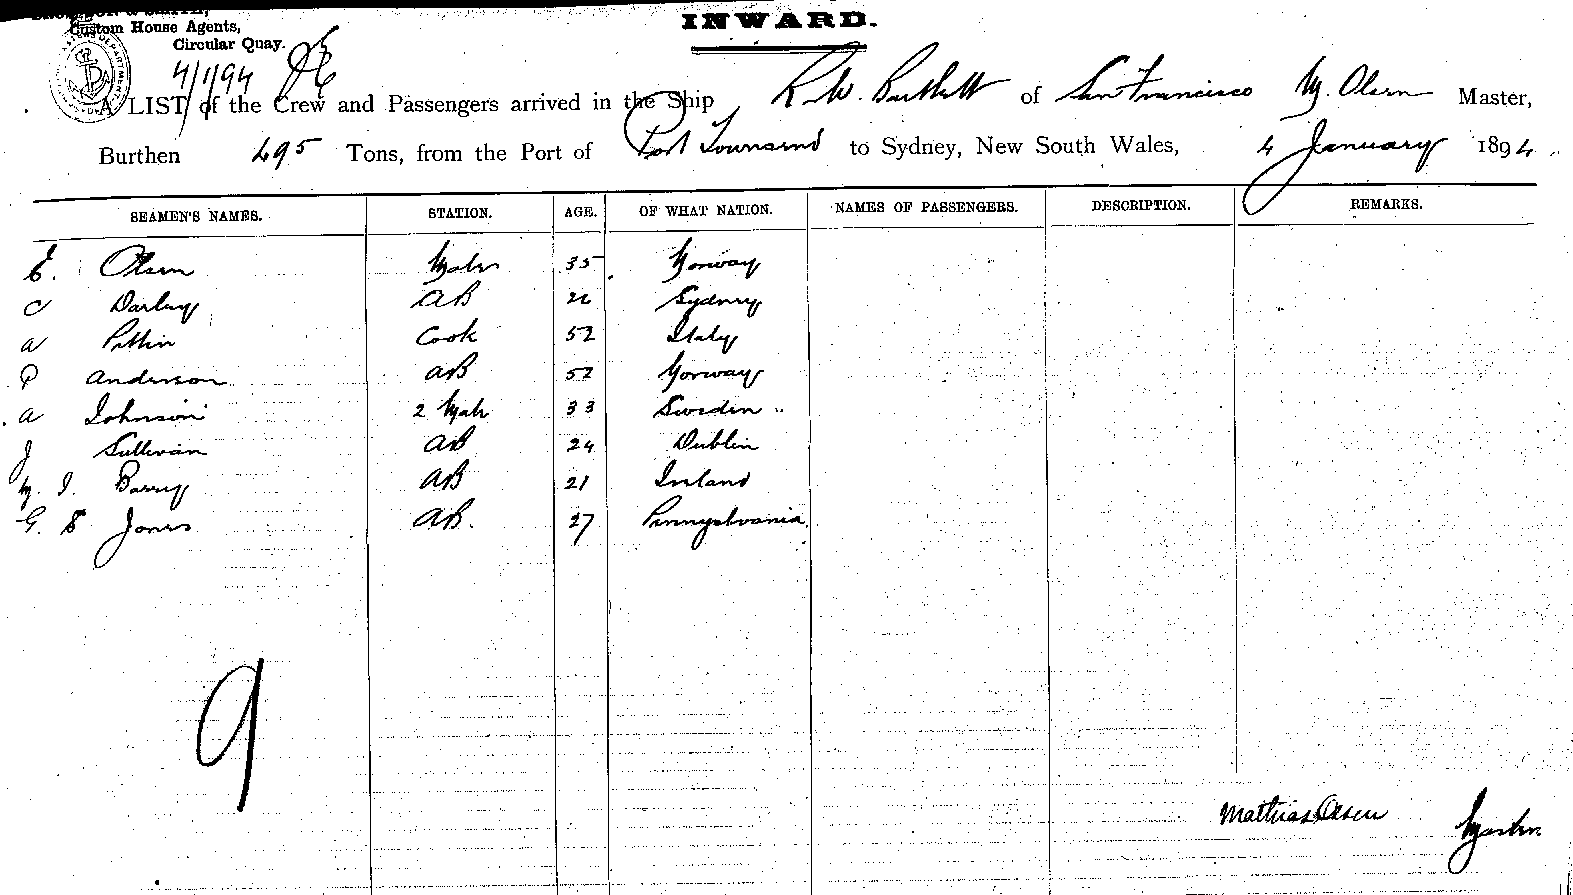 INWARD.
Custom House Agents,
Circular Quay.
4/1/94
A LIST of the Crew and Passengers arrived in the Ship R. W. Bartlett of San Francisco M. Olsen Master,
Burthen 495 Tons, from the Port of Port Townsend to Sydney, New South Wales, 4 January 1894
SEAMEN'S NAMES. STATION. AGE. OF WHAT NATION. NAMES OF PASSENGERS. DESCRIPTION. REMARKS.
E. Olsen Mate 35 Norway
C Darley AB Sydney
A Cook 52 Italy
P Anderson AB 52 Norway
A Johnson 2 Mate 33 Sweden
J Sullivan AB 24 Dublin
M. J. Barry AB 21 Ireland
G. E Jones AB. 27 Pennyslvania
9
Mathias Olsen Master